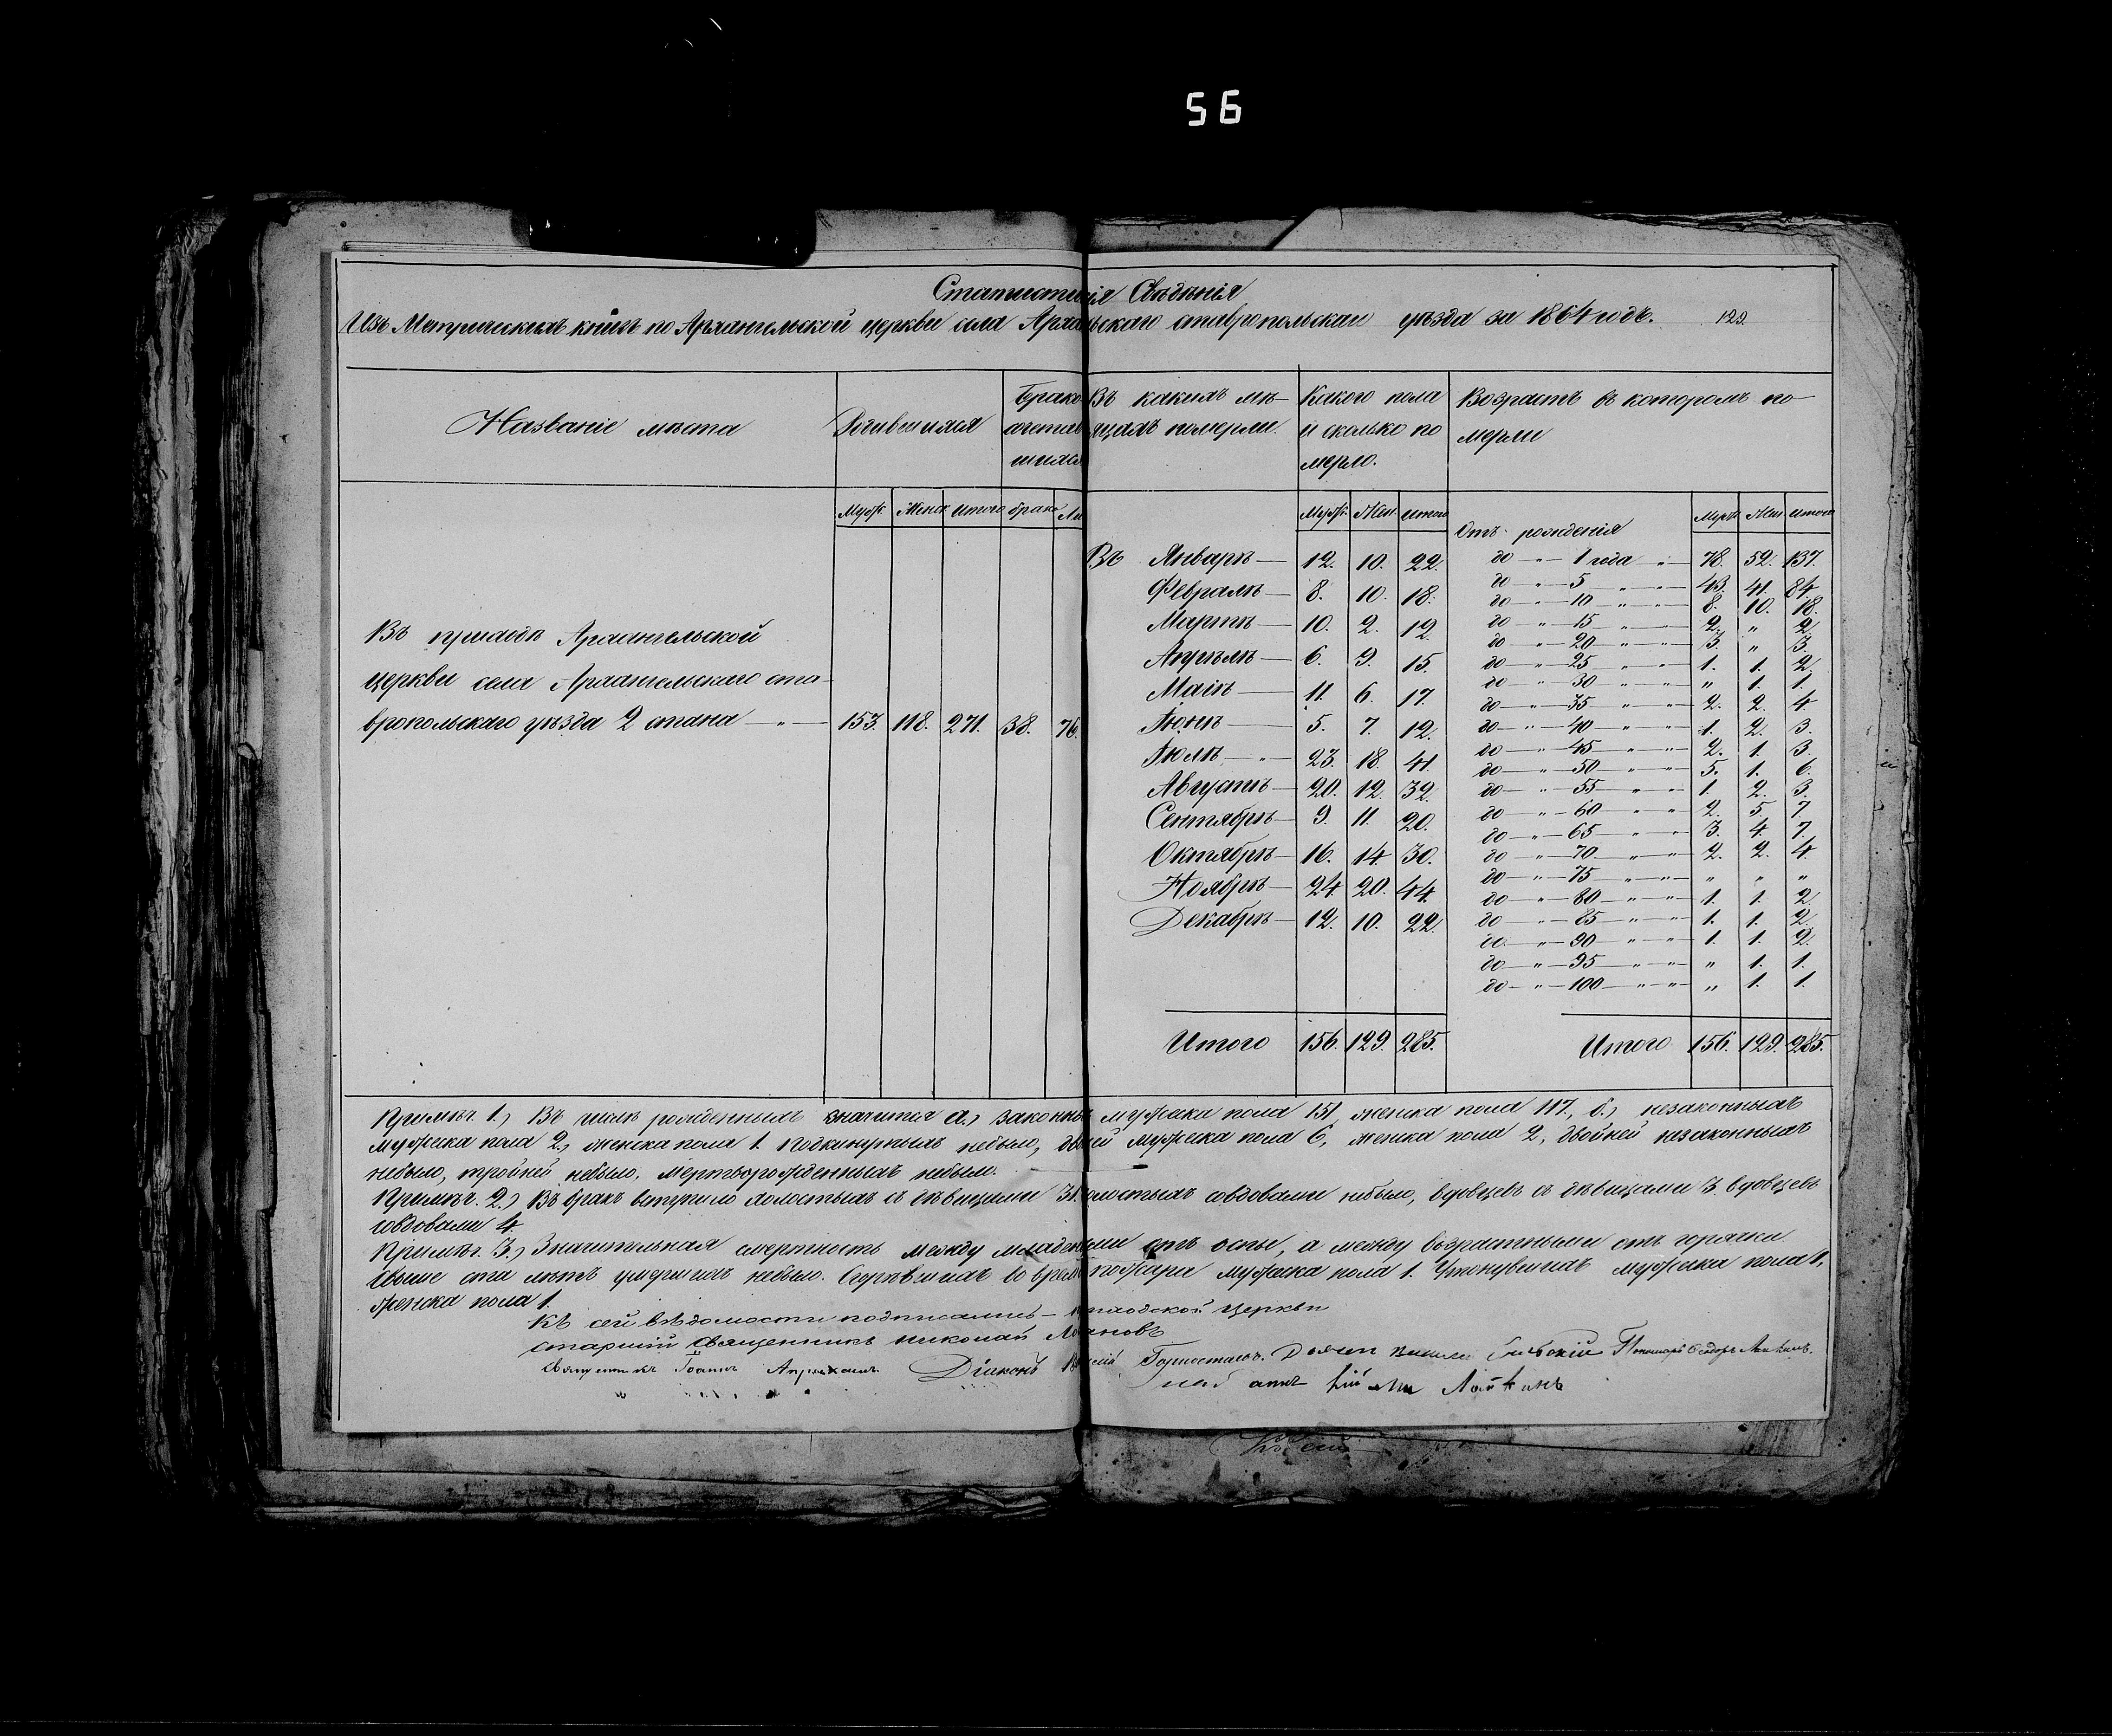 56
Статистическія Свѣдѣнія
Изъ Метрическихъ книгъ по Архангельской церкви села Архангельскаго ставропольскаго уѣзда за 1864 годъ. 129.
Названіе мѣста
Родившихся
Брако
сочетав
шихся
Въ какихъ мѣ-
сяцахъ померли.
Какого пола
и сколько по
мерло.
Возрастъ въ которомъ по-
мерли
Муж. Женск Итого брак. Ли
Въ приходѣ Архангельской
церкви села Архангельскаго ста-
вропольскаго уѣзда 2 стана — „ — 153. 118. 271. 38. 76.
Муж. Жен. Итого
Въ Январѣ — 12. 10. 22.
Февралѣ — 8. 10. 18.
Мартѣ — 10. 2. 12.
Апрѣлѣ — 6. 9. 15.
Маіѣ — 11. 6. 17.
Іюнѣ — 5. 7. 12.
Іюлѣ — „ — 23. 18. 41.
Августѣ — 20. 12. 32.
Сентябрѣ — 9. 11. 20.
Октябрѣ — 16. 14. 30.
Ноябрѣ — 24. 20. 44.
Декабрѣ — 12. 10. 22.
Итого 156. 129. 285.
Муж. Жен Итого
Отъ рожденія
до — „ — 1 года „ — 78. 52. 137.
до — „ — 5 „ — „ — 43. 41. 84.
до — „ — 10 „ — „ — 8. 10. 18.
до — „ — 15 „ — „ — 2. „ 2.
до — „ — 20 „ — „ — 3. „ 3.
до — „ — 25 „ — „ — 1. 1. 2.
до — „ — 30 „ — „ — „ 1. 1.
до — „ — 35 „ — „ — 2. 2. 4
до — „ — 40 „ — „ — 1. 2. 3.
до — „ — 45 „ — „ — 2. 1. 3.
до — „ — 50 „ — „ — 5. 1. 6.
до — „ — 55 „ — „ — 1. 2. 3.
до — „ — 60 „ — „ — 2. 5. 7
до — „ — 65 „ — „ — 3. 4. 7.
до — „ — 70 „ — „ — 2. 2. 4.
до — „ — 75 „ — „ — „ „ „
до — „ — 80 „ — „ — 1. 1. 2.
до — „ — 85 „ — „ — 1. 1. 2.
до — „ — 90 „ — „ — 1. 1. 2.
до — „ — 95 „ — „ — „ 1. 1.
до — „ — 100 „ — „ — „ 1. 1.
Итого 156. 129. 285.
Примѣч. 1.) Въ числѣ рожденныхъ значится а.) законны мужеска пола 151, женска пола 117, б.) незаконныхъ
мужеска пола 2, женска пола 1. Подкинутыхъ небыло, двойней мужеска пола 6, женска пола 2, двойней незаконныхъ
небыло, тройней небыло, мертворожденныхъ небыло.
Примѣч. 2.) Въ бракъ вступило холостыхъ съ дѣвицами 31. холостыхъ совдовами небыло, вдовцевъ съ дѣвицами 3. вдовцевъ
совдовами 4.
Примѣч. 3.) Значительная смертность между младенцами отъ оспы, а между возрастными отъ горячки.
Свыше ста лѣтъ умершихъ небыло. Сгорѣвшихъ во время пожара мужеска пола 1. Утонувшихъ мужеска пола 1,
женска пола 1.
Къ сей вѣдомости подписались — приходской церкви
старшій Священникъ Николай
Священникъ Іоаннъ Діаконъ